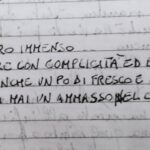 RO IMMENSO
RE CON COMPLICITÀ ED
NCHE UN PO DI FRESCO E
MAI UN AMMASSO NEL